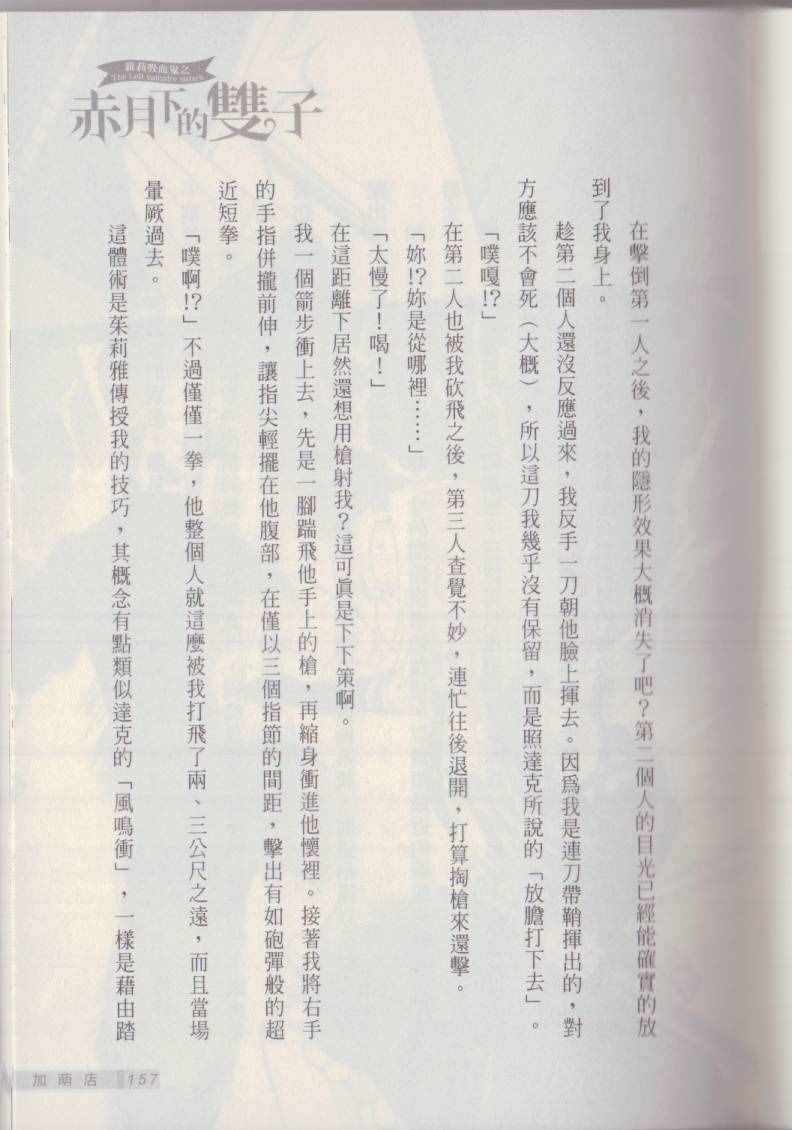 蘿莉吸血鬼之
The Loli vampire sisters
赤月下的雙子
在擊倒第一人之後，我的隱形效果大概消失了吧？第二個人的目光已經能確實的放
到了我身上。
趁第二個人還沒反應過來，我反手一刀朝他臉上揮去。因為我是連刀帶鞘揮出的，對
方應該不會死（大概），所以這刀我幾乎沒有保留，而是照達克所說的「放膽打下去」。
「噗嘎!?」
在第二人也被我砍飛之後，第三人查覺不妙，連忙往後退開，打算掏槍來還擊。
「妳!?妳是從哪裡……」
「太慢了！喝！」
在這距離下居然還想用槍射我？這可真是下下策啊。
我一個箭步衝上去，先是一腳踹飛他手上的槍，再縮身衝進他懷裡。接著我將右手
的手指併攏前伸，讓指尖輕擺在他腹部，在僅以三個指節的間距，擊出有如砲彈般的超
近短拳。
「噗啊!?」不過僅僅一拳，他整個人就這麼被我打飛了兩、三公尺之遠，而且當場
暈厥過去。
這體術是茱莉雅傳授我的技巧，其概念有點類似達克的「風鳴衝」，一樣是藉由踏
加萌店 157